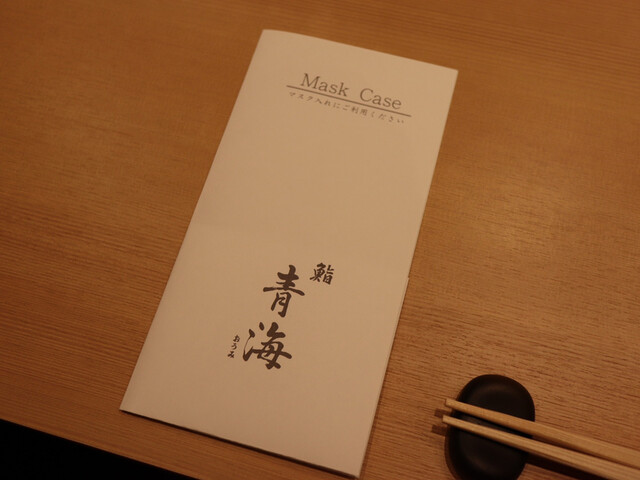 Mask Case
マスク入れにご利用ください
鮨
青海
おうみ